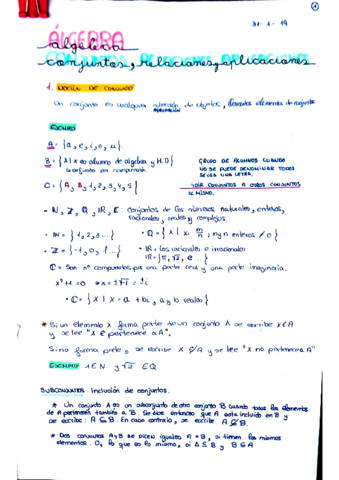 31-1-19
ÁLGEBRA
álgebra
CONJUNTOS, RELACIONES, APLICACIONES
conjuntos, relaciones y aplicaciones
1. NOCIÓN DE CONJUNTO
Un conjunto es cualquier colección de objetos, llamados elementos de conjunto
EJEMPLO
A = {a, e, i, o, u}
B = {X | X es alumno de álgebra y M.D}
GRUPO DE ALUMNOS CUANDO
NO SE PUEDE DENOMINAR TODOS
SE USA UNA LETRA.
C = {A, B, 1, 2, 3, 4, 5}
A OTROS CONJUNTOS
SÍ MISMO.
- N, Z, Q, IR, C: conjuntos de los números naturales, enteros,
racionales, reales y complejos.
• IN = {1, 2, 3...}
• Q = {X | X = m/n, m y n enteros ≠ 0}
• Z = {-1, 0, 1...}
• IR = Los racionales e irracionales
IR = {π, √2, e ...}
C = Son nº compuestos por una parte real y una parte imaginaria.
x²+1 = 0 x = ±√-1 = i
• C = {X | X = a + bi, a y b reales}
* Si un elemento x forma parte de un conjunto A se escribe x∈A
y se lee "X pertenece a A".
Si no forma parte, se escribe X ∉ A y se lee "X no pertenece a A"
EJEMPLO 1 ∈ N y √2 ∉ Q
SUBCONJUNTOS: Inclusión de conjuntos.
* Un conjunto A es un subconjunto de otro conjunto B cuando todos los elementos
de A pertenecen también a B. Se dice entonces que A está incluido en B y
se escribe: A ⊆ B. En caso contrario, se escribe A ⊈ B.
* Dos conjuntos A y B se dicen iguales A = B, si tienen los mismos
elementos. O, lo que es lo mismo, si A ⊆ B y B ⊆ A